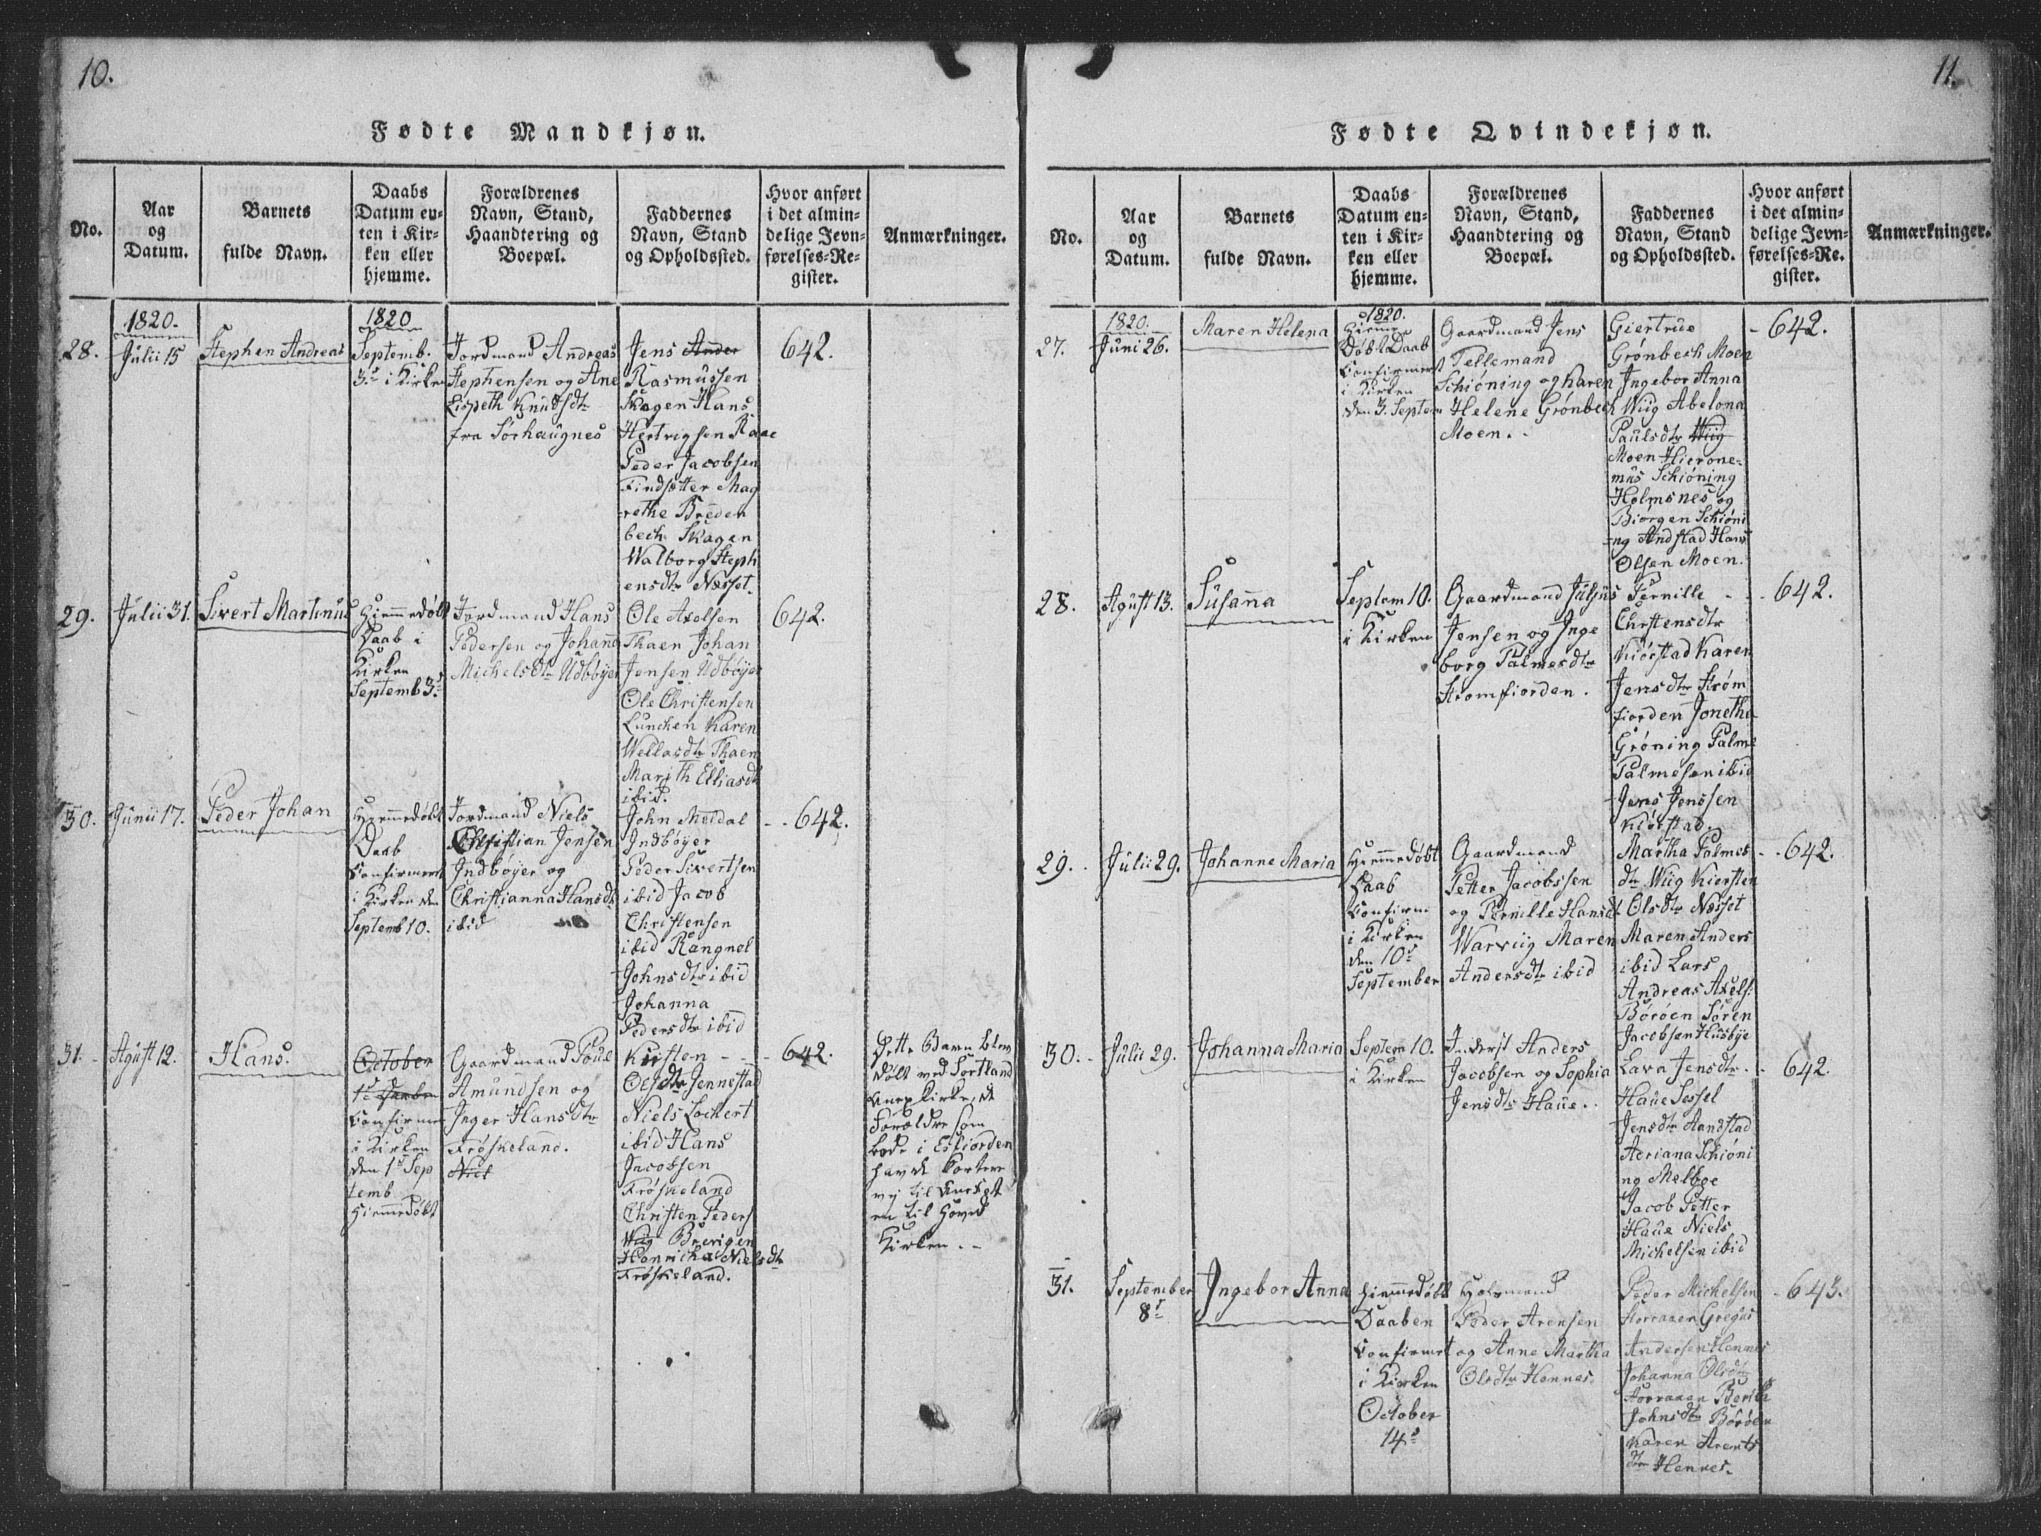 10.
Fødte Mandkjøn.
No.
Aar
og
Datum.
Barnets
fulde Navn.
Daabs
Datum en-
ten i Kir-
ken eller
hjemme.
Forældrenes
Navn, Stand,
Haandtering og
Boepæl.
Faddernes
Navn, Stand
og Opholdssted.
Hvor anført
i det almin-
delige Jevn-
førelses-Re-
gister.
Anmærkninger.
28.
1820.
Julii 15
Stephen Andreas
1820
Septemb.
3d i Kirken
Jordmand Andreas
Stephensen og Ane
Lispeth Knudsdtr
fra Sørhaugnes
Jens Ander
Rasmussen
Skagen Hans
Hertvigsen Raae
Peder Jacobsen
Findsætter Mag
rethe Breden
bech Skagen
Walborg Steph
ensdtr Næsset.
642.
29.
Julii 31.
Sivert Martinus
Hiemmedøbt
Daab i
Kirken
Septemb 3d
Jordmand Hans
Pedersen og Johanne
Michelsdtr Udbøyer
Ole Axelsen
Thaen Johan
Jensen Udbøyer
Ole Christensen
Lunchen Karen
Wellasdtr Thaen
Marith Elliasdtr
ibid.
642.
30.
Junii 17.
Peder Johan
Hiemmedøbt
Daab
Confirmert
i Kirken den
Septemb 10.
Jordmand Niels
Christian Jensen
Indbøyer og
Christianna Hansdt
ibid
John Meldal
Indbøyer
Peder Sivertsen
ibid Jacob
Christensen
ibid Rangnel
Johnsdtr ibid
Johanna
Pedersdtr ibid
642.
31.
Agust 12.
Hans.
October
1d Daaben
Confirme
i Kirken
den 1d Sep
temb
Hiemmedøbt
Gaardmand Poul
Amundsen og
Inger Hansdtr
Frøskeland.
Kirsten
Olsdtr Jennestad
Niels Lockert
ibid Hans
Jacobsen
Frøskeland
Christen Peders
Wiig Breivigen
Henricha Nielsdtr
Frøskeland.
642.
Dette Barn blev
døbt ved Sortland
Anex Kirke, da
Forældre som
boede i Eifiorden
havde kortere
vej til Anexet
en til Hoved
Kirken.
11.
Fødte Qvindekjøn.
No.
Aar
og
Datum.
Barnets
fulde Navn.
Daabs
Datum en-
ten i Kir-
ken eller
hjemme.
Forældrenes
Navn, Stand,
Haandtering og
Boepæl.
Faddernes
Navn, Stand
og Opholdssted.
Hvor anført
i det almin-
delige Jevn-
førelses-Re-
gister.
Anmærkninger.
27.
1820.
Juni 26.
Maren Helena
1820.
Hieme
Døbt Daab
Confirmert
i Kirken
den 3. Septem
Gaardmand Jens
Tellemand
Schiöning og Karen
Helene Grønbech
Moen.
Giertrue
Grønbech Moen
Ingebor Anna
Wiig Abelona
Paulsdtr Wiig
Moen Hierone-
mus Schiöning
Holmsnes og
Biorgen Schiöni
ng Andstad Hans
Olsen Moen.
642.
28.
Agust 13.
Susanna
Septem 10.
i Kirken
Gaardmand Julius
Jensen og Inge
borg Palmesdtr
Stromfiorden.
Pernille
Christensdtr
Kiörstad Karen
Jensdtr Strøm
fiorden Jonetha
Grøning Palme
Palmesen ibid
Jens Jenssen
Kiörstad.
642.
29.
Julii 29.
Johanne Maria
Hiemmedøbt
Daab
Confirm
i Kirken
den 10d
September
Gaardmand
Petter Jacobssen
og Pernille Hansdt
Warviig Maren
Andersdtr ibid
Martha Palmes
dtr Wiig Kiersten
Olsdtr Næsset
Maren Anders
ibid Lars
Andreas Axels:
Böröen Sören
Jacobsen Husbye
642.
30.
Julii 29.
Johanna Maria
Septem 10.
i Kirken
Inderst Anders
Jacobsen og Sophia
Jensdtr Haue.
Lava Jensdtr
Haue Sessel
Jensdtr Aandstad
Adriana Schiöni
ng Melboe
Jacob Petter
Haue Niels
Michelsen ibid
642.
31.
September
8d
Ingebor Anna
Hiemmedøbt
Daaben
Confirmert
i Kirken
October
14d
Huusmand
Peder Arensen
og Anne Martha
Olsdtr Hennes
Peder Michelsen
Gregus
Andersen Hennes
Johanna Olsdtr
Johnsdtr Böröen
Karen Arents
dtr Hennes.
643.